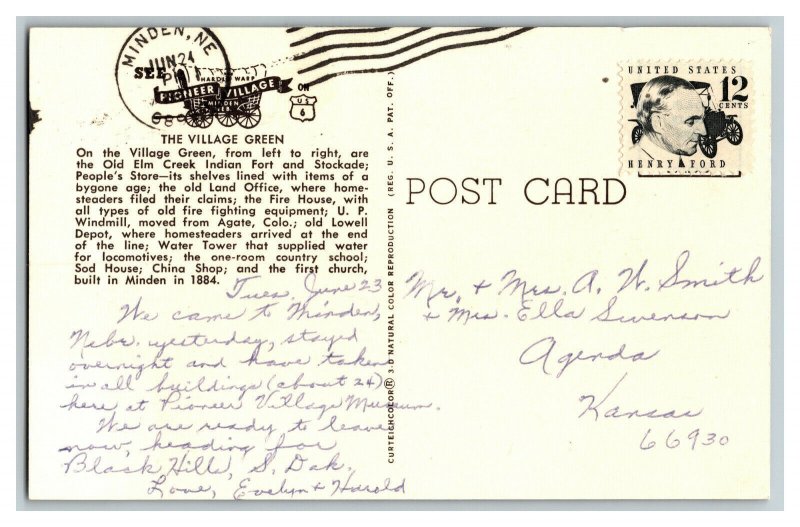 MINDEN, NE
JUN 24
PM
SEE
HAROLD WARP
PIONEER VILLAGE
MINDEN
NEB
ON
U S
6
UNITED STATES
12
CENTS
HENRY FORD
THE VILLAGE GREEN
On the Village Green, from left to right, are
the Old Elm Creek Indian Fort and Stockade;
People's Store—its shelves lined with items of a
bygone age; the old Land Office, where home-
steaders filed their claims; the Fire House, with
all types of old fire fighting equipment; U. P.
Windmill, moved from Agate, Colo.; old Lowell
Depot, where homesteaders arrived at the end
of the line; Water Tower that supplied water
for locomotives; the one-room country school;
Sod House; China Shop; and the first church,
built in Minden in 1884.
Tues. June 23
We came to Minden,
Nebr. yesterday, stayed
overnight and have taken
in all buildings (about 24)
here at Pioneer Village Museum.
We are ready to leave
now, heading for
Black Hills, S. Dak.
Love, Evelyn + Harold
CURTEICHCOLOR® 3-D NATURAL COLOR REPRODUCTION (REG. U. S. A. PAT. OFF.)
POST CARD
Mr. + Mrs. A. W. Smith
+ Mrs. Ella Swenson
Agenda
Kansas
66930